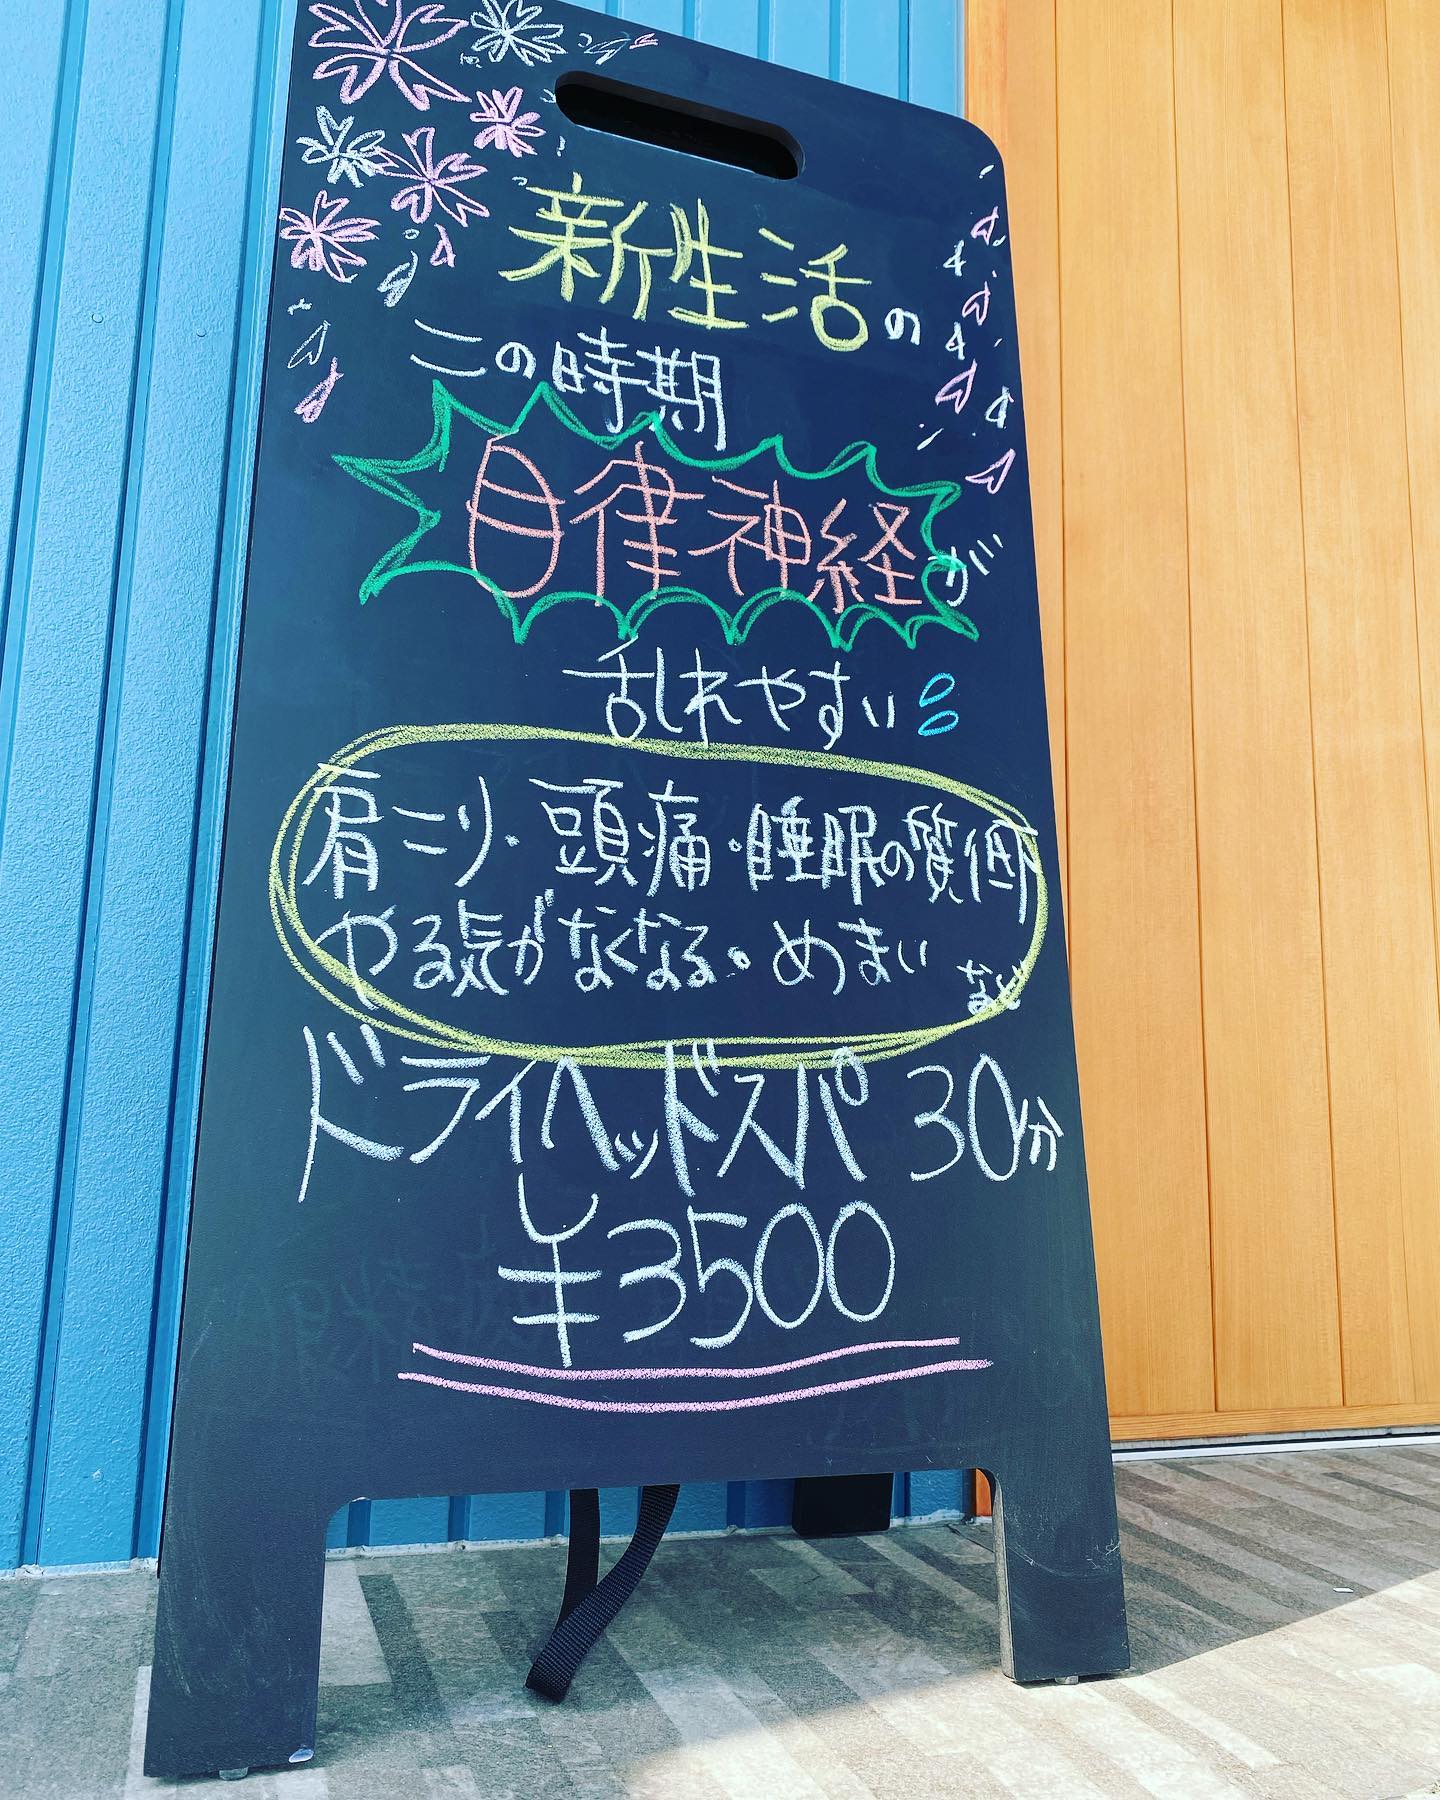 新生活の
この時期
自律神経が
乱れやすい
肩こり・頭痛・睡眠の質低下
やる気がなくなる。めまい
など
ドライヘッドスパ 30分
¥3500